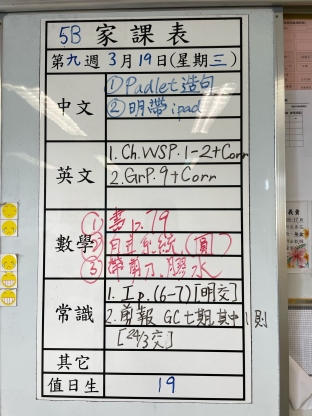 5B 家課表
第九週 3月19日(星期三)
中文
① Padlet 造句
② 明帶 ipad
英文
1. Ch.WSP.1-2+Corr
2. GrP.9+Corr
數學
① 書p.79
② 自主系統(圓)
③ 帶剪刀、膠水
常識
1. Ip.(6-7)[明交]
2. 剪報 GC七期,其中1則
[24/3交]
其它
值日生
19